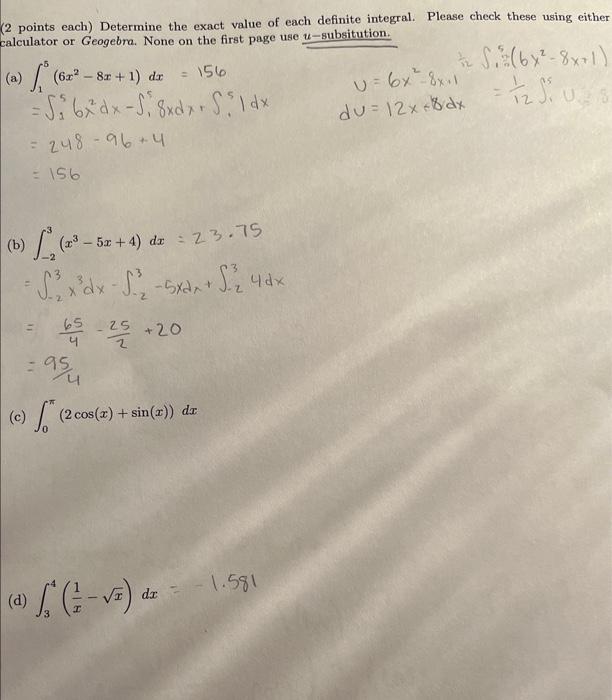 (2 points each) Determine the exact value of each definite integral. Please check these using either
calculator or Geogebra. None on the first page use u−subsitution.
(a) ∫₁⁵ (6x² − 8x + 1) dx = 156
= ∫₁⁵ 6x² dx − ∫₁⁵ 8x dx + ∫₁⁵ 1 dx
= 248 - 96 + 4
= 156
u = 6x² - 8x + 1
du = 12x - 8 dx
1/12 ∫₁⁵ (6x² - 8x + 1)
= 1/12 ∫₁⁵ u
(b) ∫₋₂³ (x³ − 5x + 4) dx = 23.75
= ∫₋₂³ x³ dx - ∫₋₂³ -5x dx + ∫₋₂³ 4 dx
= 65/4 - 25/2 + 20
= 95/4
(c) ∫₀^π (2 cos(x) + sin(x)) dx
(d) ∫₃⁴ (1/x − √x) dx = -1.581